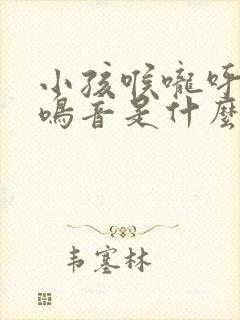 小孩喉嚨呼
鳴音是什麼
韦塞林